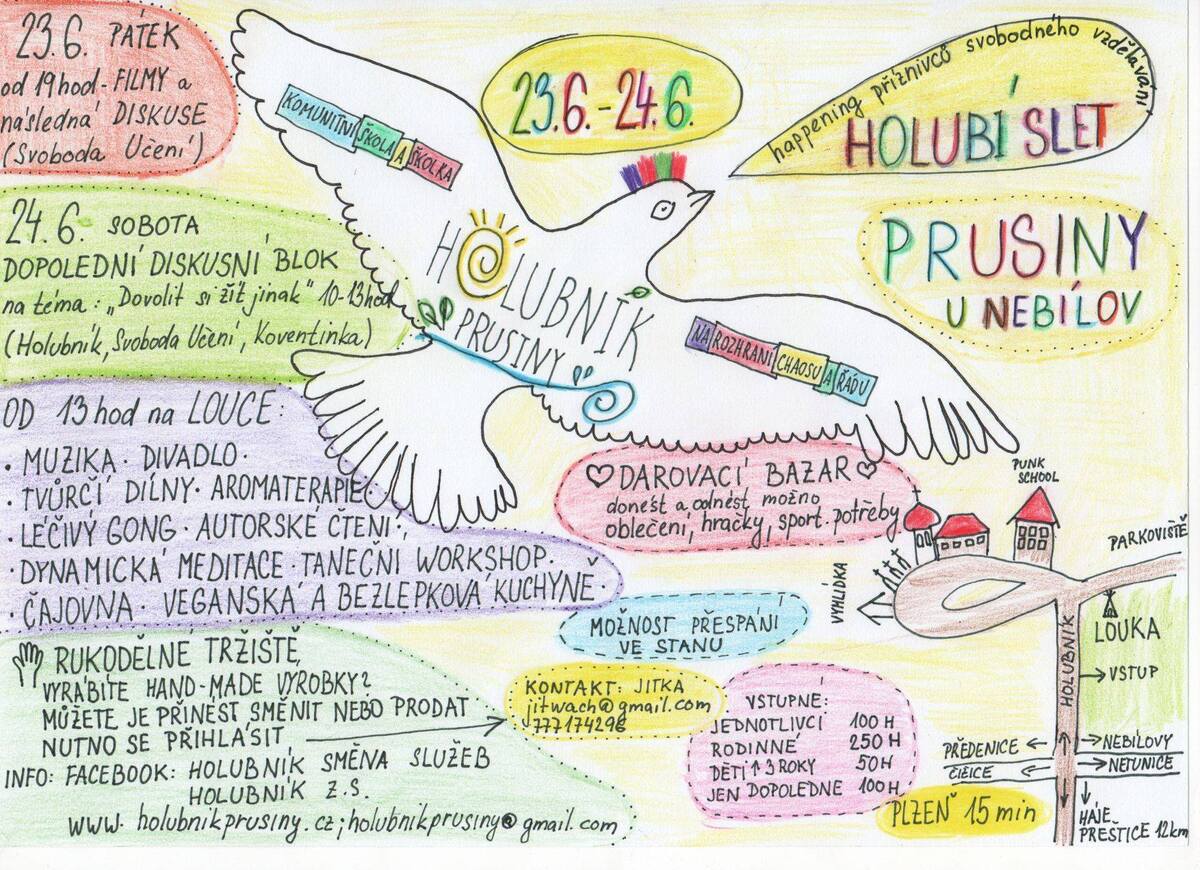 23.6. PÁTEK
od 19hod - FILMY a
následná DISKUSE
(Svoboda Učení)
24.6. SOBOTA
DOPOLEDNÍ DISKUSNÍ BLOK
na téma: „Dovolit si žít jinak" 10-13hod
(Holubník, Svoboda Učení, Koventinka)
OD 13hod na LOUCE:
· MUZIKA · DIVADLO ·
· TVŮRČÍ DÍLNY · AROMATERAPIE ·
· LÉČIVÝ GONG · AUTORSKÉ ČTENÍ ·
· DYNAMICKÁ MEDITACE · TANEČNÍ WORKSHOP ·
· ČAJOVNA · VEGANSKÁ A BEZLEPKOVÁ KUCHYNĚ ·
RUKODĚLNÉ TRŽIŠTĚ
VYRÁBÍTE HAND-MADE VÝROBKY?
MŮŽETE JE PŘINÉST SMĚNIT NEBO PRODAT
NUTNO SE PŘIHLÁSIT
INFO: FACEBOOK: HOLUBNÍK SMĚNA SLUŽEB
HOLUBNÍK Z.S.
WWW. holubnikprusiny.cz; holubnikprusiny@gmail.com
KOMUNITNÍ ŠKOLA A ŠKOLKA
HOLUBNÍK
PRUSINY
NA ROZHRANÍ CHAOSU A ŘÁDU
23.6. - 24.6.
happening příznivců svobodného vzdělávání
HOLUBÍ SLET
PRUSINY
U NEBÍLOV
DAROVACÍ BAZAR
donést a odnést možno
oblečení, hračky, sport. potřeby
MOŽNOST PŘESPÁNÍ
VE STANU
KONTAKT: JITKA
jitwach@gmail.com
777174296
VSTUPNÉ:
JEDNOTLIVCI 100 H
RODINNÉ 250 H
DĚTI ↑ 3 ROKY 50 H
JEN DOPOLEDNE 100 H
PUNK
SCHOOL
PARKOVIŠTĚ
VYHLÍDKA
LOUKA
HOLUBNÍK
→ VSTUP
PŘEDENICE ←
→ NEBÍLOVY
ČIŽICE ←
→ NETUNICE
PLZEŇ 15 min
HÁJE
PŘEŠTICE 12km